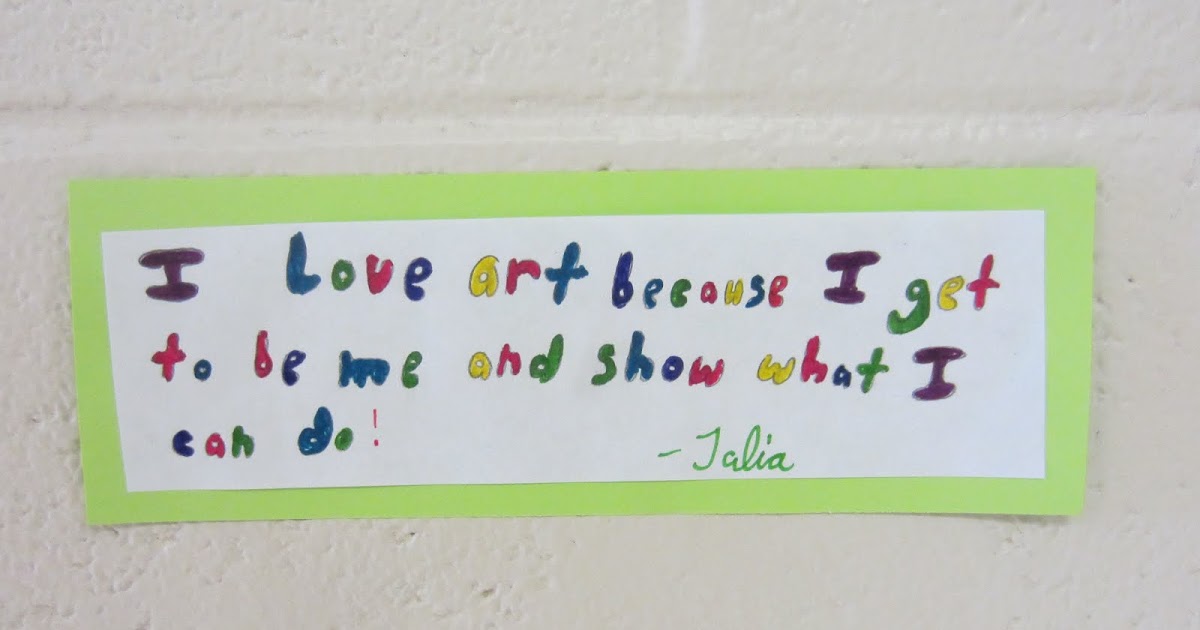 I Love art because I get
to be me and show what I
can do!
-Talia